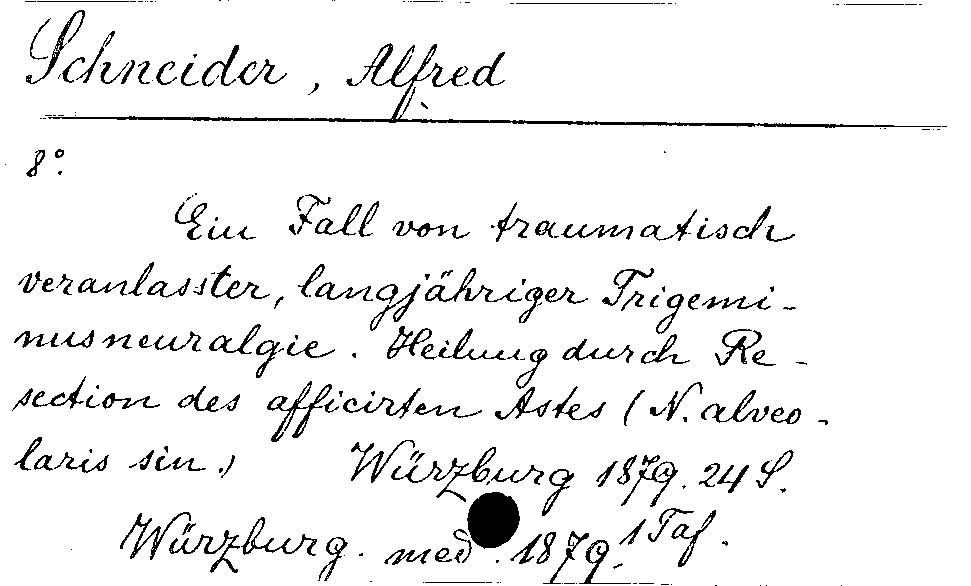 Schneider, Alfred
8°.
Ein Fall von traumatisch
veranlasster, langjähriger Trigemi-
nusneuralgie. Heilung durch Re-
section des afficirten Astes (N. alveo-
laris sin.) Würzburg 1879. 24 S.
1 Taf.
Würzburg. med. 1879.